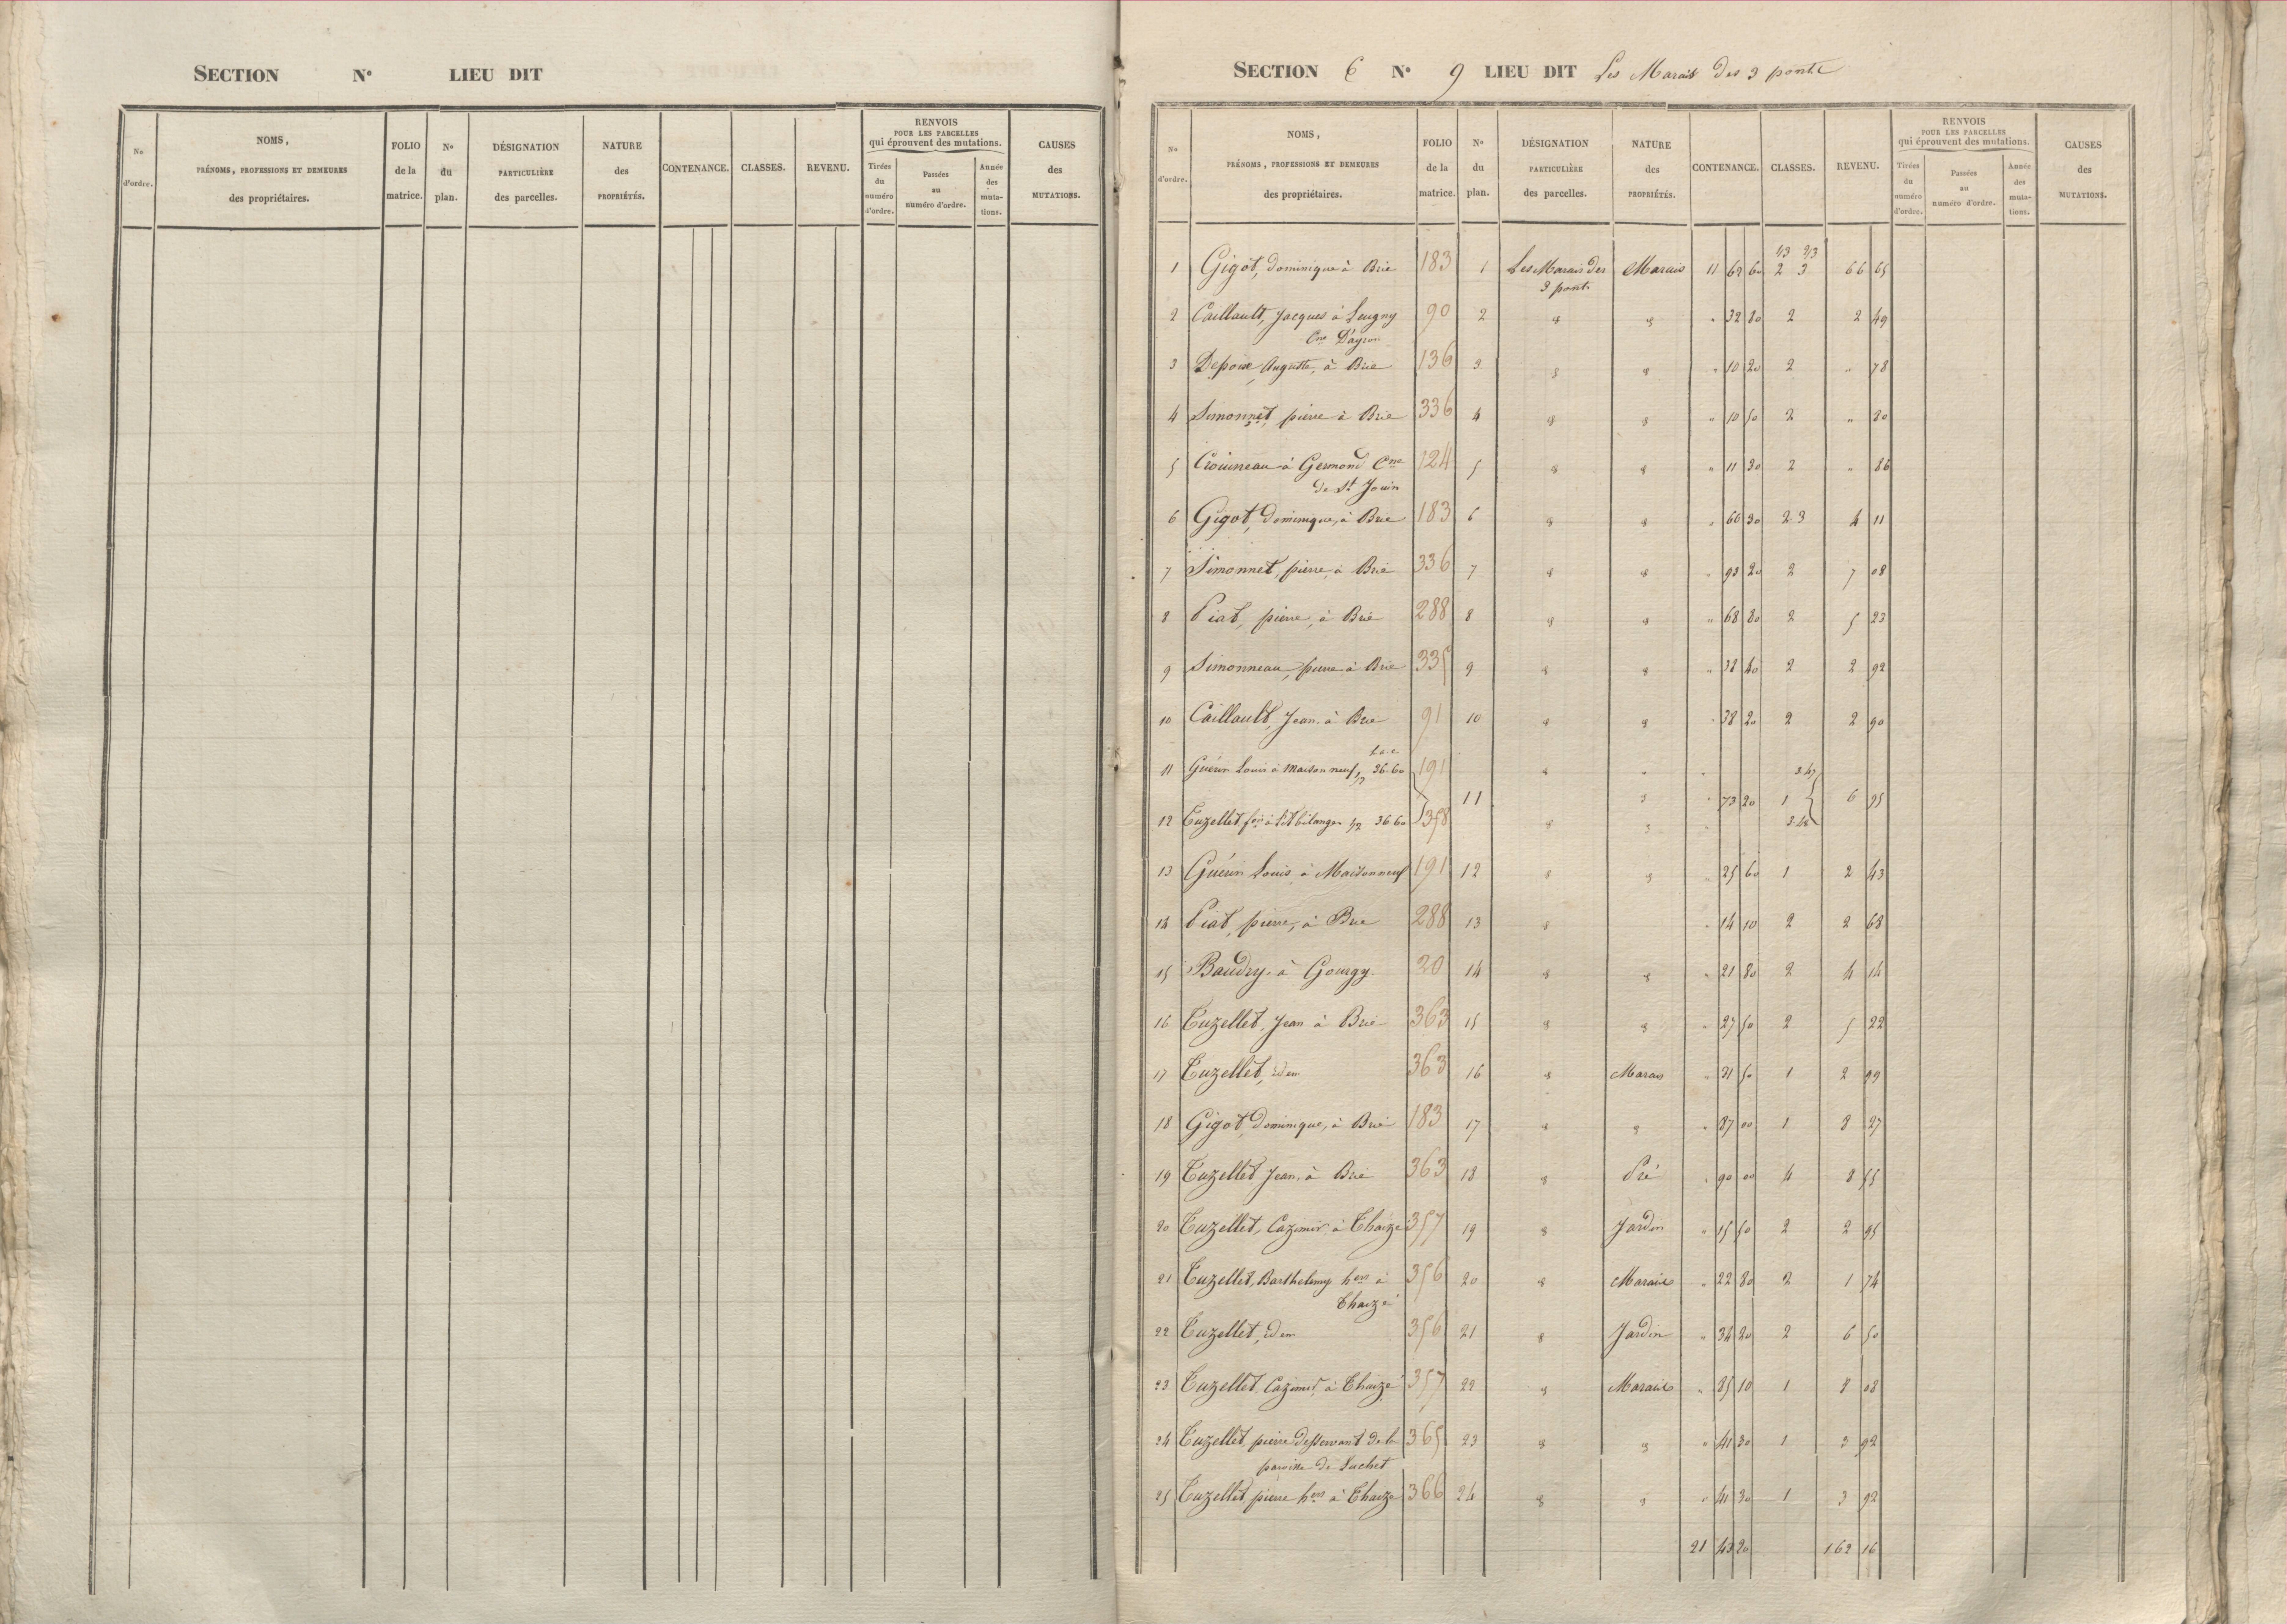 SECTION N° LIEU DIT
No d'ordre.
NOMS, PRÉNOMS, PROFESSIONS ET DEMEURES des propriétaires.
FOLIO de la matrice.
N° du plan.
DÉSIGNATION PARTICULIÈRE des parcelles.
NATURE des PROPRIÉTÉS.
CONTENANCE.
CLASSES.
REVENU.
RENVOIS POUR LES PARCELLES qui éprouvent des mutations.
Tirées du numéro d'ordre.
Passées au numéro d'ordre.
Année des mutations.
CAUSES des MUTATIONS.
SECTION E N° 9 LIEU DIT Les Marais des 3 ponts
No d'ordre.
NOMS, PRÉNOMS, PROFESSIONS ET DEMEURES des propriétaires.
FOLIO de la matrice.
N° du plan.
DÉSIGNATION PARTICULIÈRE des parcelles.
NATURE des PROPRIÉTÉS.
CONTENANCE.
CLASSES.
REVENU.
RENVOIS POUR LES PARCELLES qui éprouvent des mutations.
Tirées du numéro d'ordre.
Passées au numéro d'ordre.
Année des mutations.
CAUSES des MUTATIONS.
1/3 2/3
1 Gigot, dominique à Brie 183 1 Les Marais des Marais 11 62 60 2 3 66 65
3 ponts
2 Caillault, Jacques à Leugny 90 2 " " " 32 80 2 2 49
Cne D'ayron
3 Depoix, Auguste, à Brie 136 3 " " " 10 20 2 " 78
4 Simonnet, pierre à Brie 336 4 " " " 10 50 2 " 80
5 Crouineau à Germond Cne 124 5 " " " 11 30 2 " 86
de St Jouin
6 Gigot, dominique, à Brie 183 6 " " " 60 30 2 3 4 11
7 Simonnet, pierre, à Brie 336 7 " " " 93 20 2 7 08
8 Piat, pierre, à Brie 288 8 " " " 68 80 2 5 23
9 Simonneau, pierre à Brie 335 9 " " " 38 40 2 2 92
10 Caillault, Jean à Brie 91 10 " " " 38 20 2 2 90
11 Guérin Louis à Maisonneuf 1/2 36.60 191 " " " 3.47
11 " " 73 20 1 6 95
12 Tuzellet 1/2 36.60 358 " " " 3.48
13 Guérin Louis à Maisonneuf 191 12 " " " 25 60 1 2 43
14 Piat, pierre, à Brie 288 13 " " 14 10 2 2 68
15 Baudry à Gourgy 20 14 " " " 21 80 2 4 14
16 Tuzellet, Jean à Brie 363 15 " " " 27 50 2 5 22
17 Tuzellet, idem 363 16 " Marais " 31 50 1 2 99
18 Gigot, dominique, à Brie 183 17 " " " 87 00 1 8 27
19 Tuzellet Jean, à Brie 363 18 " Pré " 90 00 4 8 55
20 Tuzellet, Cazimir à Thaizé 357 19 " Jardin " 15 50 2 2 95
21 Tuzellet, Barthelemy hers à 356 20 " Marais " 22 80 2 1 74
Thaizé
22 Tuzellet, idem 356 21 " Jardin " 34 20 2 6 50
23 Tuzellet, Cazimir, à Thaizé 357 22 " Marais " 85 10 1 8 08
24 Tuzellet, pierre desservant de la 365 23 " " " 41 30 1 3 92
paroisse de
25 Tuzellet, pierre hers à Thaizé 366 24 " " " 41 30 1 3 92
21 43 20 162 16